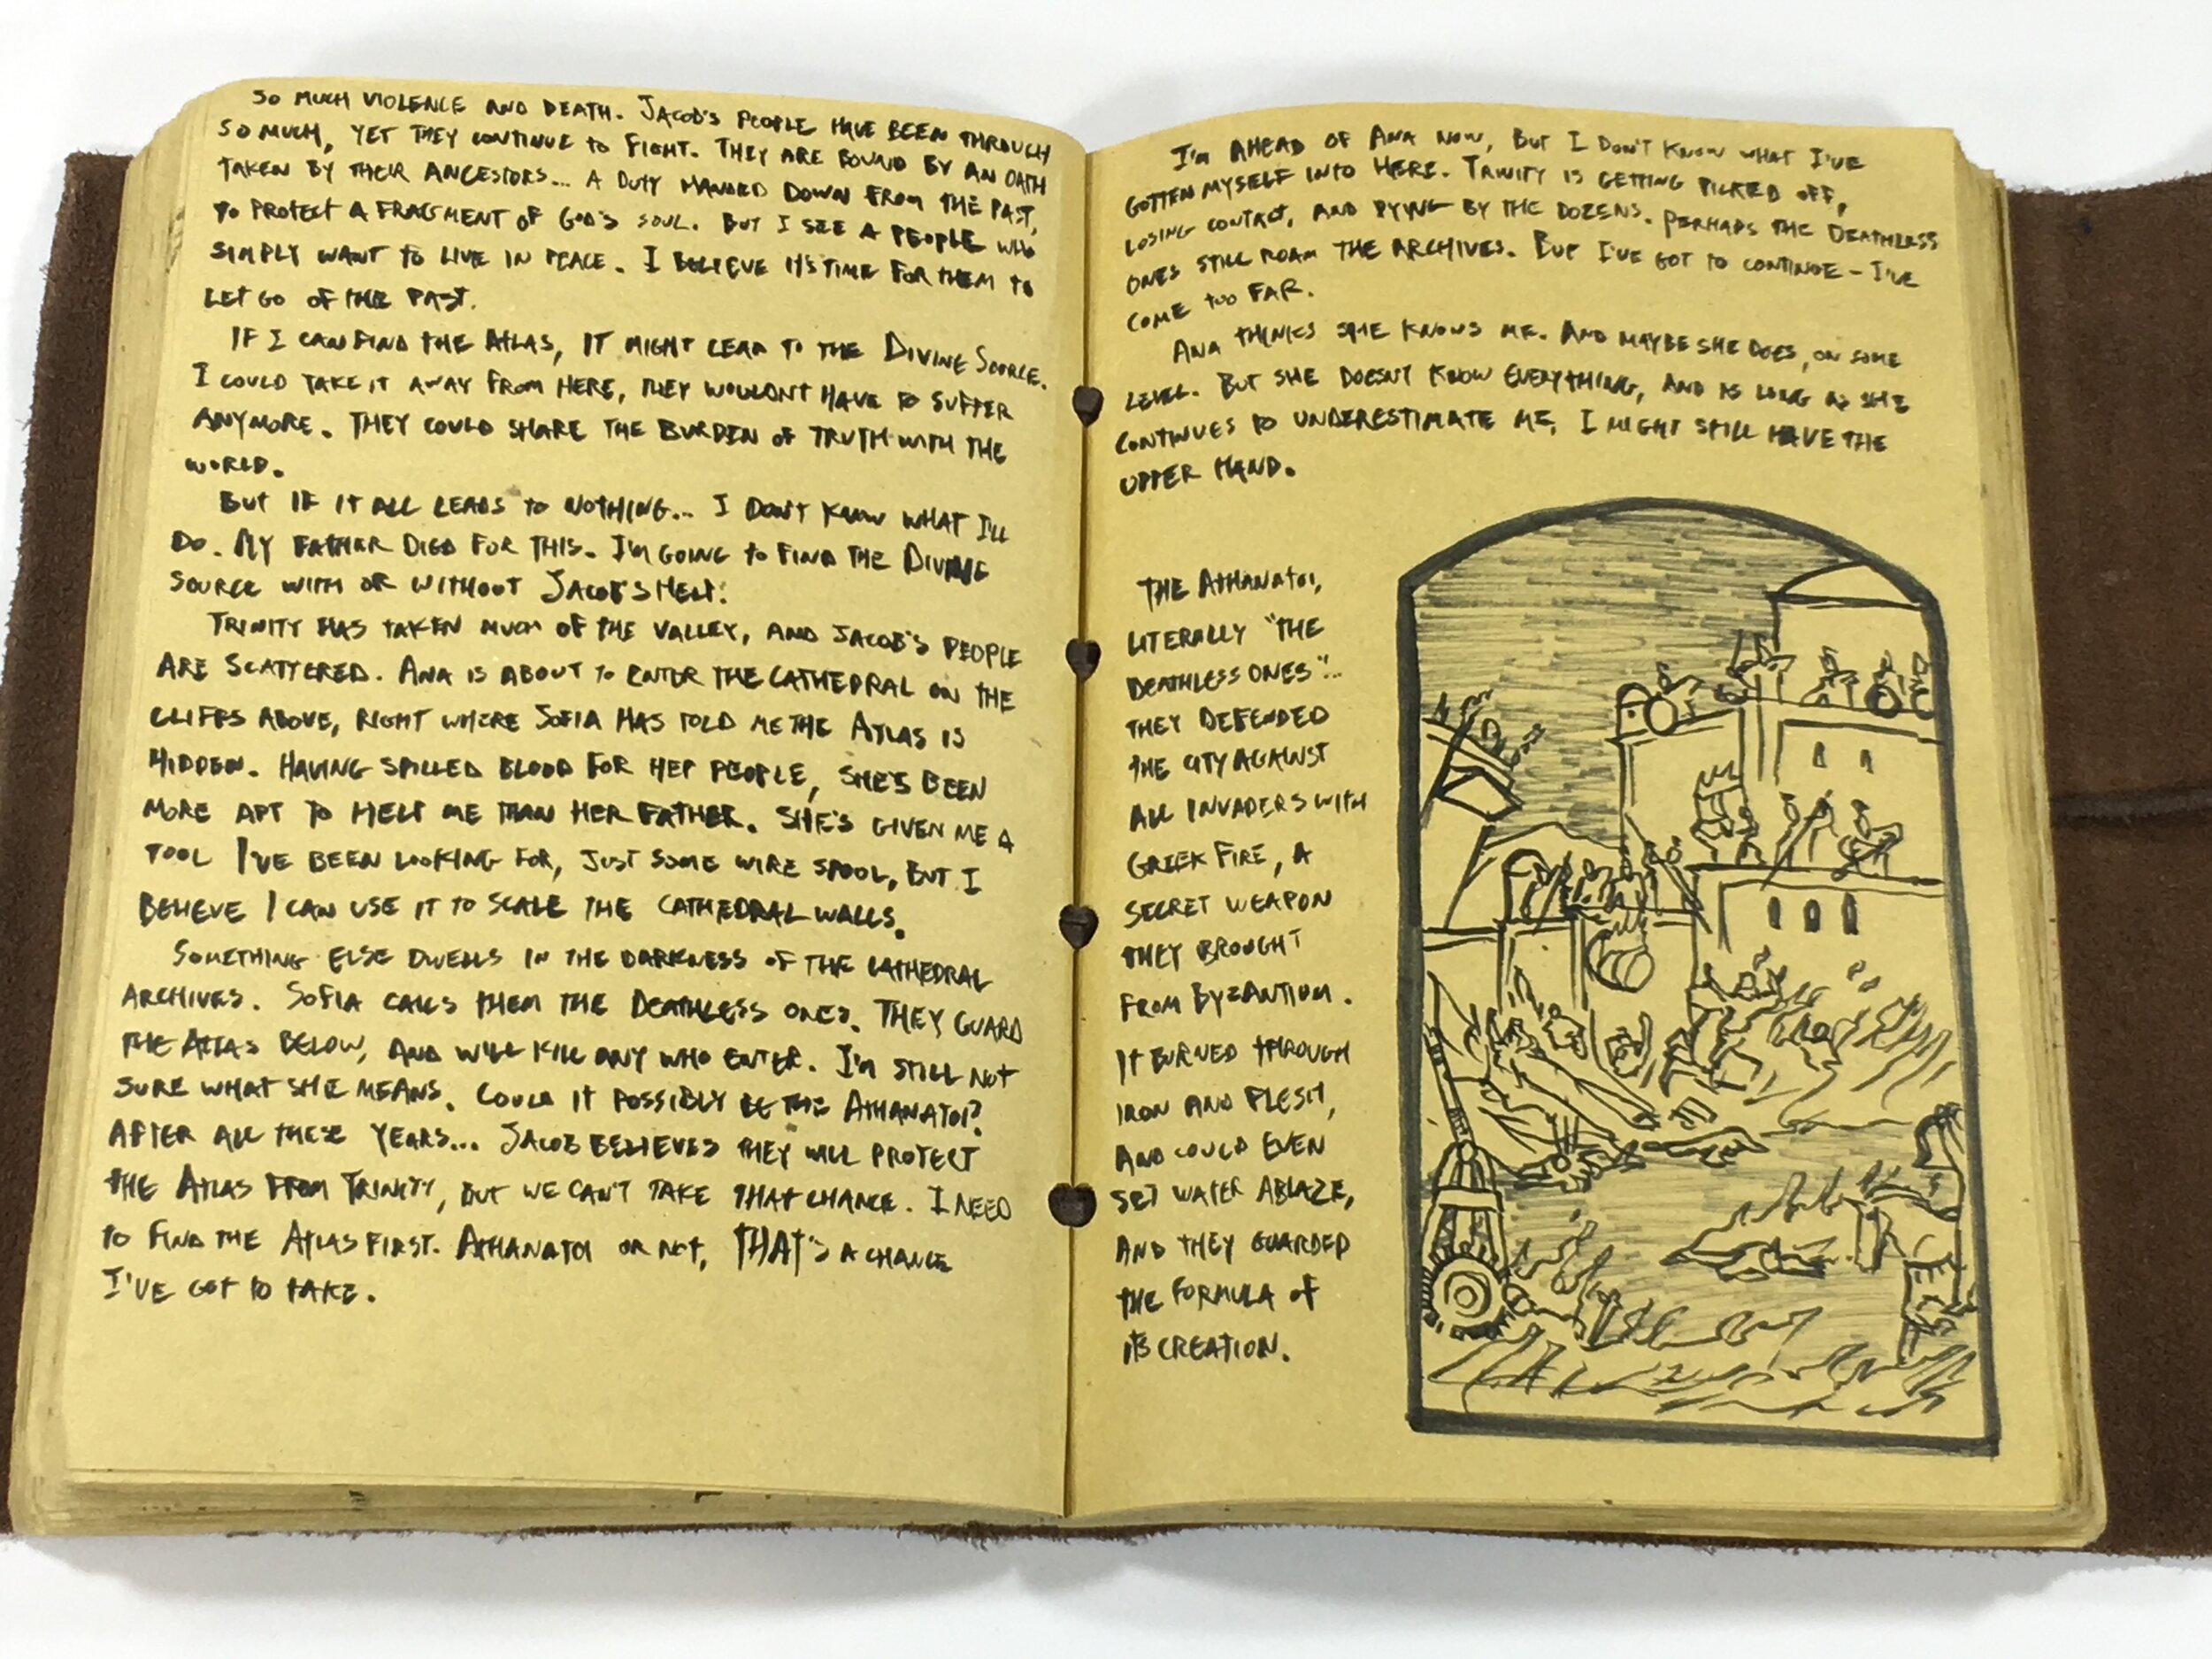 SO MUCH VIOLENCE AND DEATH. JACOB'S PEOPLE HAVE BEEN THROUGH
SO MUCH, YET THEY CONTINUE TO FIGHT. THEY ARE BOUND BY AN OATH
TAKEN BY THEIR ANCESTORS... A DUTY HANDED DOWN FROM THE PAST,
TO PROTECT A FRAGMENT OF GOD'S SOUL. BUT I SEE A PEOPLE WHO
SIMPLY WANT TO LIVE IN PEACE. I BELIEVE IT'S TIME FOR THEM TO
LET GO OF THE PAST.
IF I CAN FIND THE ATLAS, IT MIGHT LEAD TO THE DIVINE SOURCE.
I COULD TAKE IT AWAY FROM HERE, THEY WOULDN'T HAVE TO SUFFER
ANYMORE. THEY COULD SHARE THE BURDEN OF TRUTH WITH THE
WORLD.
BUT IF IT ALL LEADS TO NOTHING... I DON'T KNOW WHAT I'LL
DO. MY FATHER DIED FOR THIS. I'M GOING TO FIND THE DIVINE
SOURCE WITH OR WITHOUT JACOB'S HELP.
TRINITY HAS TAKEN MUCH OF THE VALLEY, AND JACOB'S PEOPLE
ARE SCATTERED. ANA IS ABOUT TO ENTER THE CATHEDRAL ON THE
CLIFFS ABOVE, RIGHT WHERE SOFIA HAS TOLD ME THE ATLAS IS
HIDDEN. HAVING SPILLED BLOOD FOR HER PEOPLE, SHE'S BEEN
MORE APT TO HELP ME THAN HER FATHER. SHE'S GIVEN ME A
TOOL I'VE BEEN LOOKING FOR, JUST SOME WIRE SPOOL, BUT I
BELIEVE I CAN USE IT TO SCALE THE CATHEDRAL WALLS.
SOMETHING ELSE DWELLS IN THE DARKNESS OF THE CATHEDRAL
ARCHIVES. SOFIA CALLS THEM THE DEATHLESS ONES. THEY GUARD
THE ATLAS BELOW, AND WILL KILL ANY WHO ENTER. I'M STILL NOT
SURE WHAT SHE MEANS. COULD IT POSSIBLY BE THE ATHANATOI?
AFTER ALL THESE YEARS... JACOB BELIEVES THEY WILL PROTECT
THE ATLAS FROM TRINITY, BUT WE CAN'T TAKE THAT CHANCE. I NEED
TO FIND THE ATLAS FIRST. ATHANATOI OR NOT, THAT'S A CHANCE
I'VE GOT TO TAKE.
I'M AHEAD OF ANA NOW, BUT I DON'T KNOW WHAT I'VE
GOTTEN MYSELF INTO HERE. TRINITY IS GETTING PICKED OFF,
LOSING CONTACT, AND DYING BY THE DOZENS. PERHAPS THE DEATHLESS
ONES STILL ROAM THE ARCHIVES. BUT I'VE GOT TO CONTINUE - I'VE
COME TOO FAR.
ANA THINKS SHE KNOWS ME. AND MAYBE SHE DOES, ON SOME
LEVEL. BUT SHE DOESN'T KNOW EVERYTHING, AND AS LONG AS SHE
CONTINUES TO UNDERESTIMATE ME, I MIGHT STILL HAVE THE
UPPER HAND.
THE ATHANATOI,
LITERALLY "THE
DEATHLESS ONES"..
THEY DEFENDED
THE CITY AGAINST
ALL INVADERS WITH
GREEK FIRE, A
SECRET WEAPON
THEY BROUGHT
FROM BYZANTIUM.
IT BURNED THROUGH
IRON AND FLESH,
AND COULD EVEN
SET WATER ABLAZE,
AND THEY GUARDED
THE FORMULA OF
ITS CREATION.